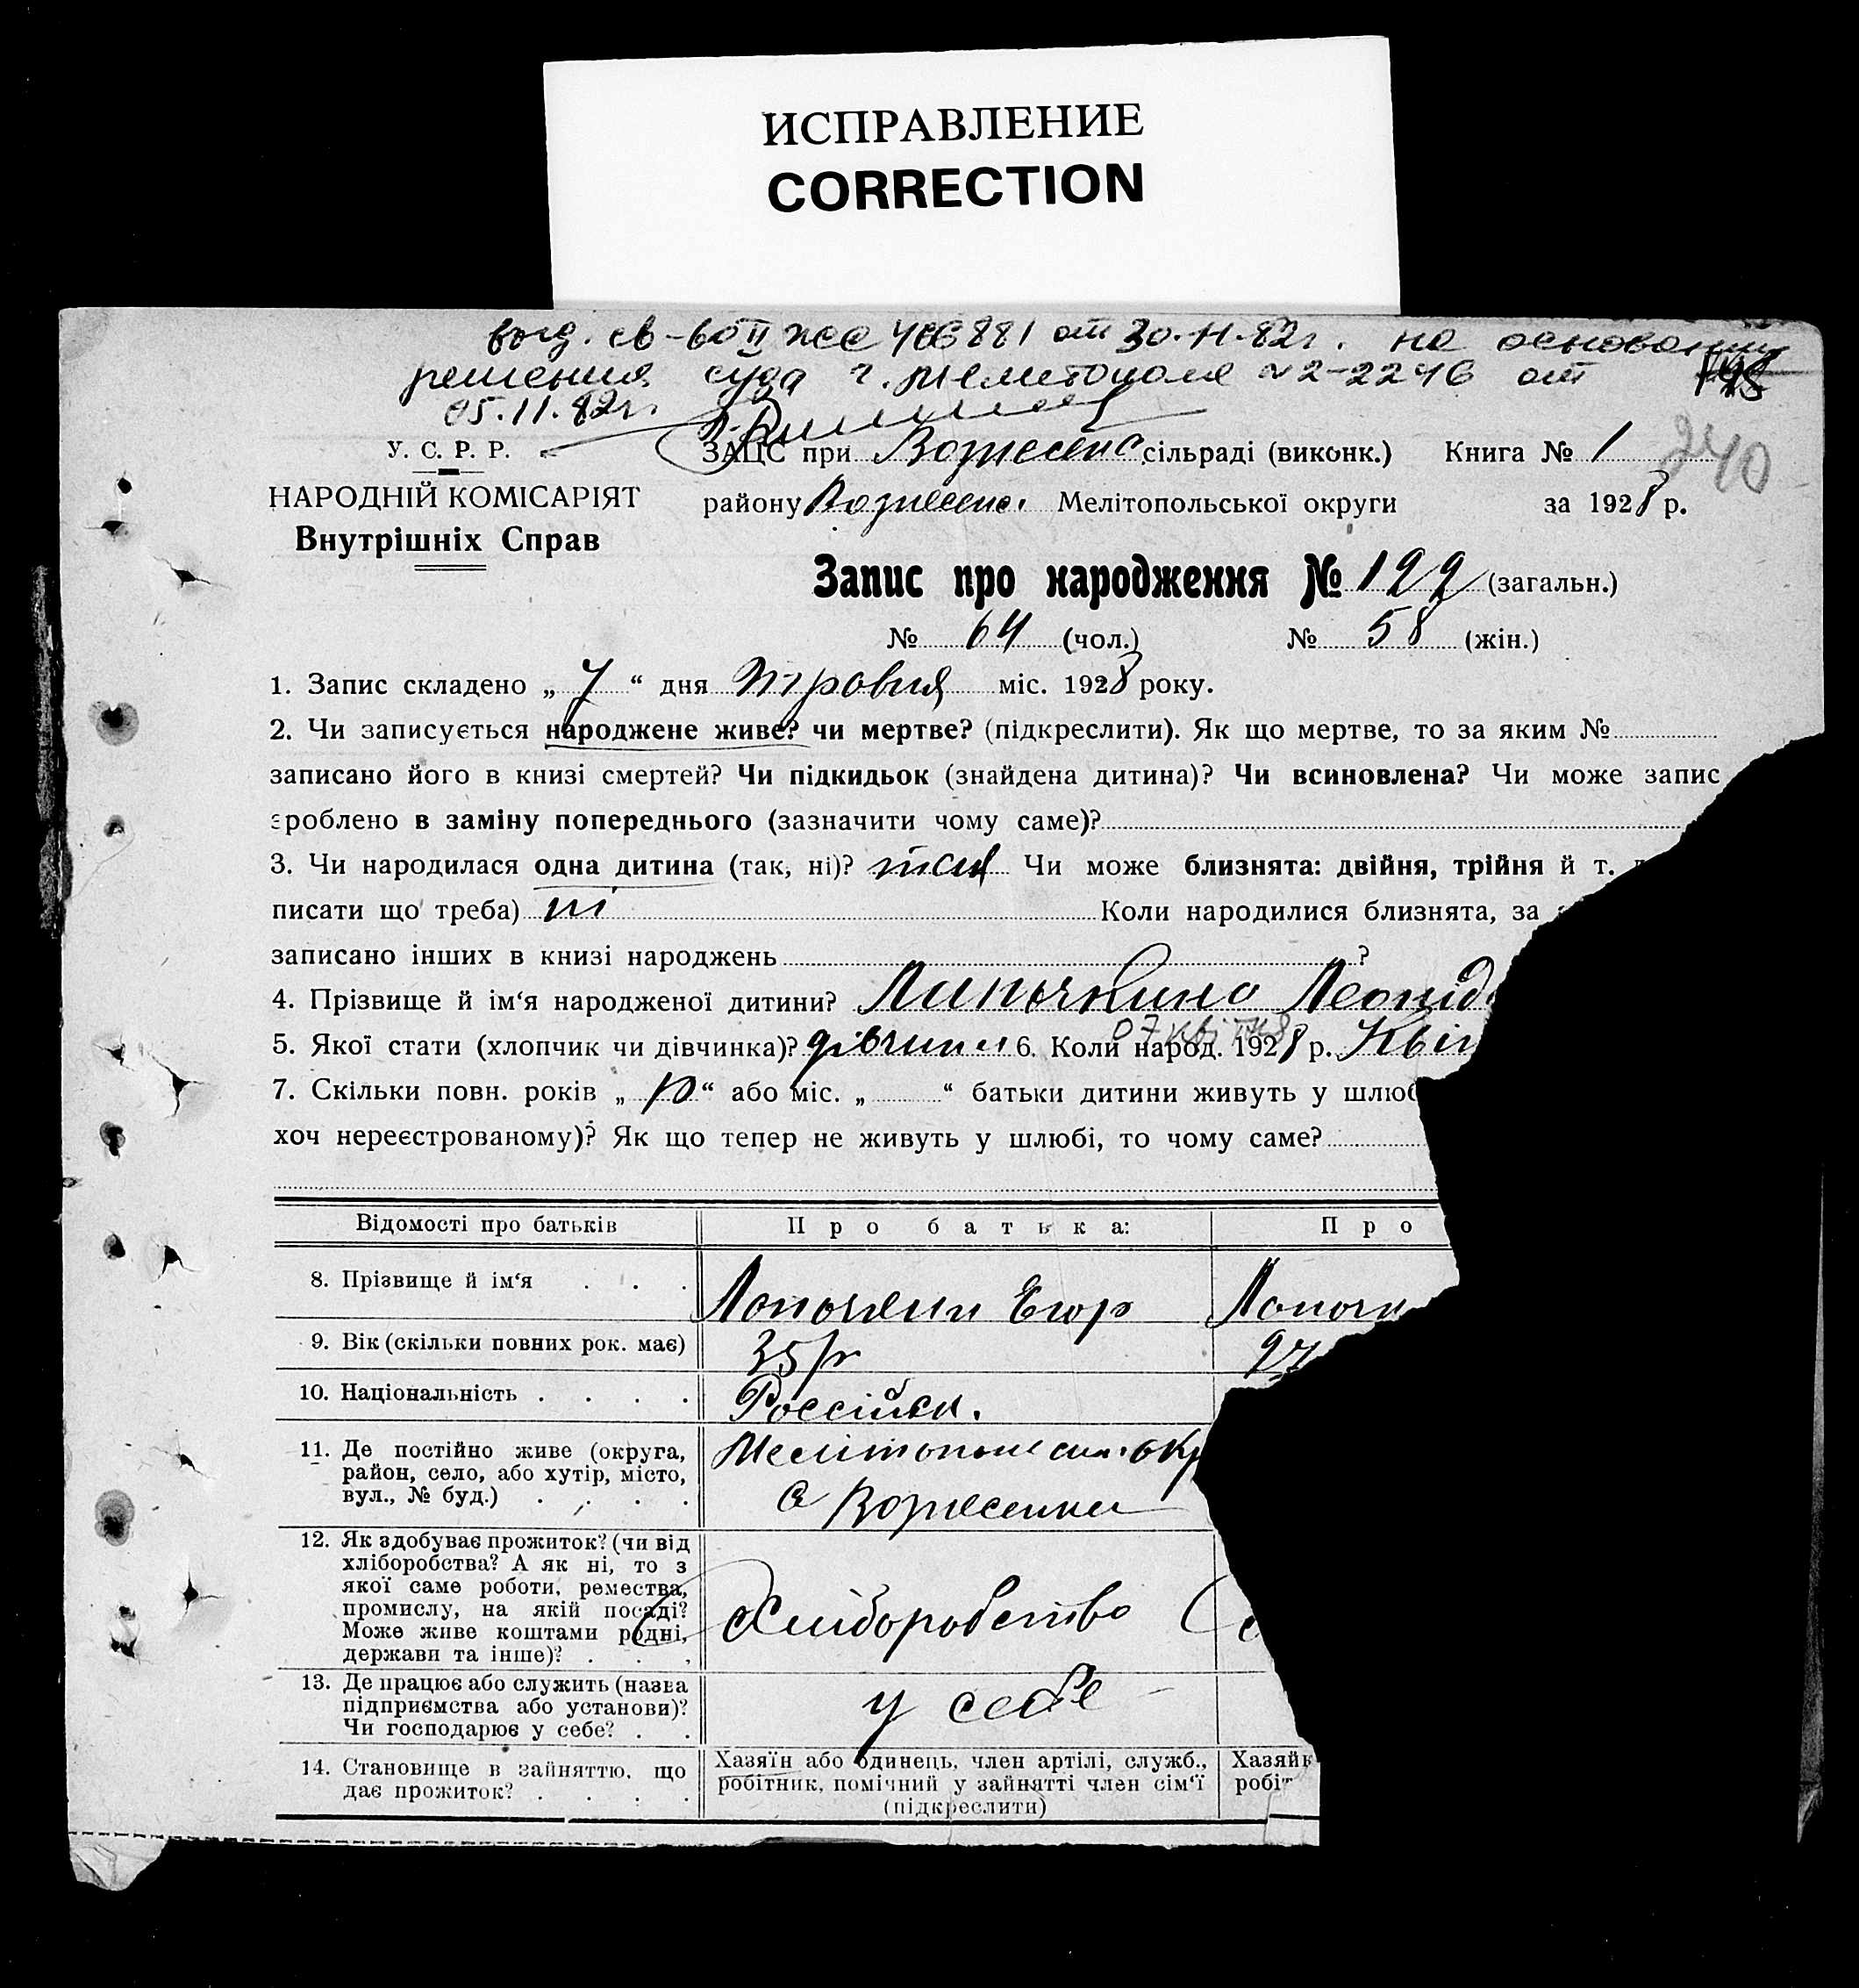 ИСПРАВЛЕНИЕ
CORRECTION
выд. св-во II от 30.11.82г. на основании
решения суда г. Мелитополя №2-2246 от
05.11.82г.
240
У. С. Р. Р.
НАРОДНІЙ КОМІСАРІЯТ
Внутрішніх Справ
ЗАЦС при Вознесенс. сільраді (виконк.) Книга № 1
району Вознесенс. Мелітопольської округи за 1928 р.
Запис про народження № 122 (загальн.)
№ 64 (чол.) № 58 (жін.)
1. Запис складено „ 7 “ дня травня міс. 1928 року.
2. Чи записується народжене живе? чи мертве? (підкреслити). Як що мертве, то за яким №
записано його в книзі смертей? Чи підкидьок (знайдена дитина)? Чи всиновлена? Чи може запис
зроблено в заміну попереднього (зазначити чому саме)?
3. Чи народилася одна дитина (так, ні)? так Чи може близнята: двійня, трійня й т.
писати що треба) ні Коли народилися близнята, за
записано інших в книзі народжень ?
4. Прізвище й ім‘я народженої дитини? Лапочкина Леонід
07 квітня
5. Якої стати (хлопчик чи дівчинка)? дівчина 6. Коли народ. 1928 р. Квіт
7. Скільки повн. років „ 10 “ або міс. „ “ батьки дитини живуть у шлюб
хоч нереєстрованому)? Як що тепер не живуть у шлюбі, то чому саме?
Відомості про батьків Про батька: Про
8. Прізвище й ім‘я . . . Лапочкин Егор Лапочк
9. Вік (скільки повних рок. має) 35 р 27
10. Національність . . . . Россійск.
11. Де постійно живе (округа,
район, село, або хутір, місто,
вул., № буд.) . . . .
Мелітопольськ. окр
с Вознесенка
12. Як здобуває прожиток? (чи від
хліборобства? А як ні, то з
якої саме роботи, ремества,
промислу, на якій посаді?
Може живе коштами рідні,
держави та інше)? . . .
Хліборобство
13. Де працює або служить (назва
підприємства або установи)?
Чи господарює у себе? . .
у себе
14. Становище в зайняттю, що
дає прожиток? . . . .
Хазяїн або одинець, член артілі, служб.,
робітник, помічний у зайнятті член сім‘ї
(підкреслити)
Хазяйк
робіт